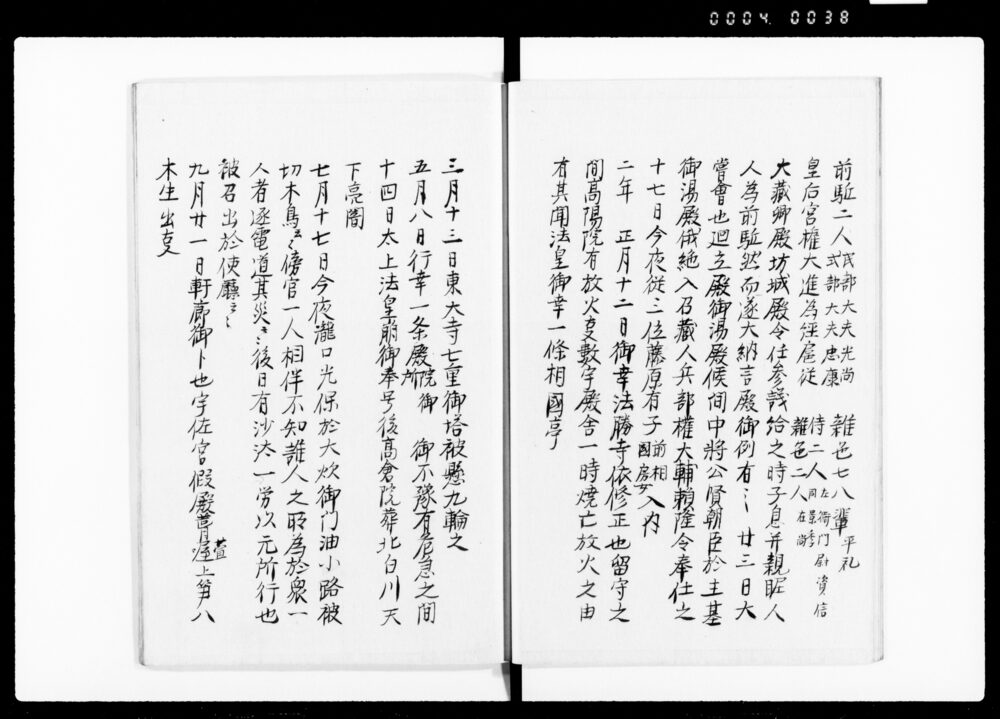 0004. 0038
前駈二人 民部大夫光尚 式部大夫忠康 雑色七八輩平礼
皇后宮権大進為経扈従 侍二人 左衛門尉資信 同景季 雑色二人在尚
大蔵卿殿坊城殿令任参議給之時子息并親昵人
人為前駈然而遂大納言殿御例有〻 廿三日大
嘗會也廻立殿御湯殿候間中将公賢朝臣於主基
御湯殿俄絶入召蔵人兵部権大輔頼隆令奉仕之
十七日今夜従三位藤原有子 前相國房女 入内
二年 正月十二日御幸法勝寺依修正也留守之
間高陽院有放火支数宇殿舎一時焼亡放火之由
有其聞法皇御幸一條相國亭
三月十三日東大寺七重御塔被懸九輪之
五月八日行幸一条殿 院御所 御不豫有危急之間
十四日太上法皇崩御奉号後高倉院葬北白川天
下亮闇
七月十七日今夜瀧口光保於大炊御門油小路被
切木鳥〻〻傍官一人相伴不知誰人之所為於眾一
人者逐電道其災〻〻後日有沙汰一労以元所行也
被召出於使廳〻〻
九月廿一日軒廊御卜也宇佐宮假殿葺渥萱上笋八
木生出支